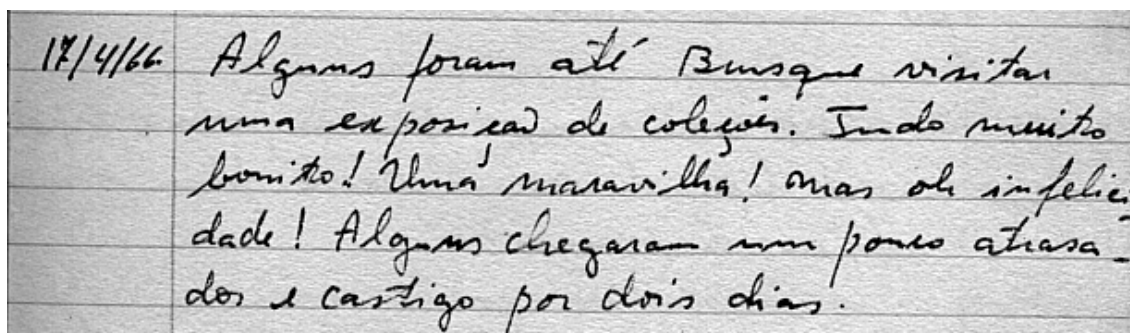 17/4/66. Alguns foram até Brusque visitar
uma exposição de coleções. Tudo muito
bonito! Uma maravilha! Mas oh infelici-
dade! Alguns chegaram um pouco atrasa-
dos e castigo por dois dias.